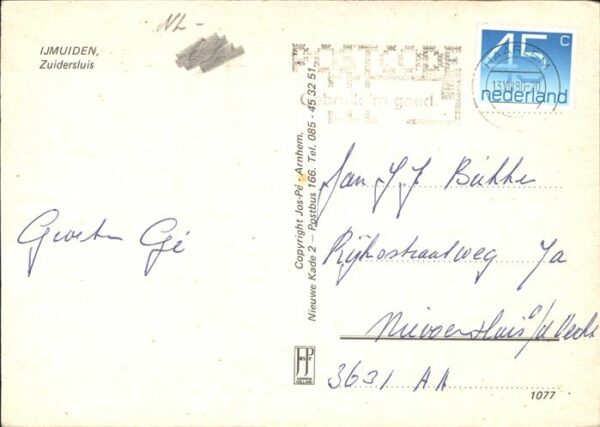 NL-
IJMUIDEN,
Zuidersluis
Groeten Gé
Copyright Jos-Pé - Arnhem.
Nieuwe Kade 2 – Postbus 166. Tel. 085 - 45 32 51
JosPé
ARNHEM
HOLLAND
POSTCODE
Gebruik 'm goed.
45 C
nederland
Fam J. J. Bükke
Rijksstraatweg 7a
Nieuwersluis a/d Vecht
3631 AA
1077